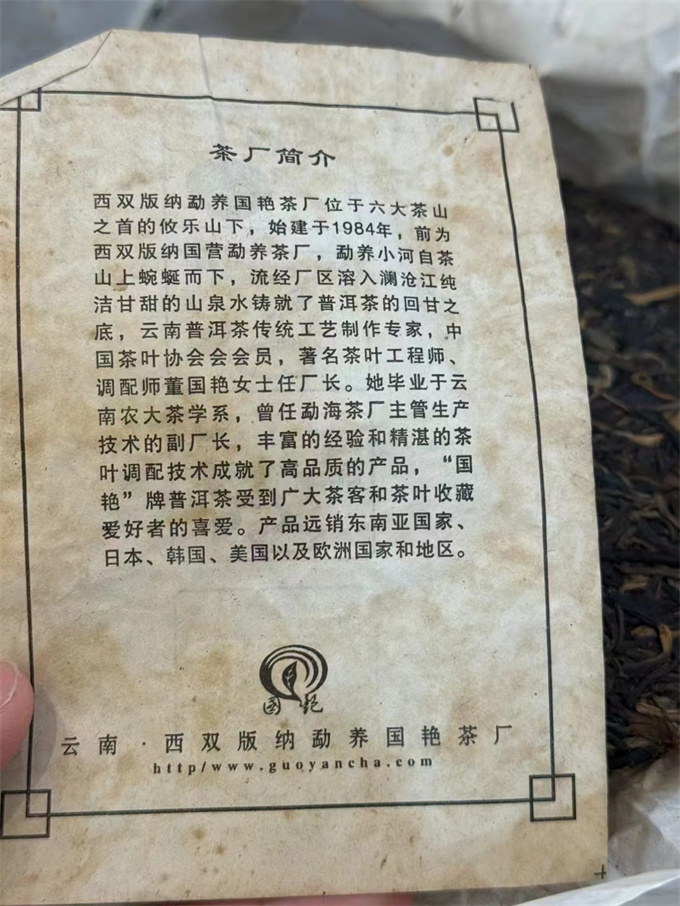 茶厂简介
西双版纳勐养国艳茶厂位于六大茶山
之首的攸乐山下，始建于1984年，前为
西双版纳国营勐养茶厂，勐养小河自茶
山上蜿蜒而下，流经厂区溶入澜沧江纯
洁甘甜的山泉水铸就了普洱茶的回甘之
底，云南普洱茶传统工艺制作专家，中
国茶叶协会会会员，著名茶叶工程师、
调配师董国艳女士任厂长。她毕业于云
南农大茶学系，曾任勐海茶厂主管生产
技术的副厂长，丰富的经验和精湛的茶
叶调配技术成就了高品质的产品，“国
艳”牌普洱茶受到广大茶客和茶叶收藏
爱好者的喜爱。产品远销东南亚国家、
日本、韩国、美国以及欧洲国家和地区。
国艳
云南·西双版纳勐养国艳茶厂
http/www.guoyancha.com